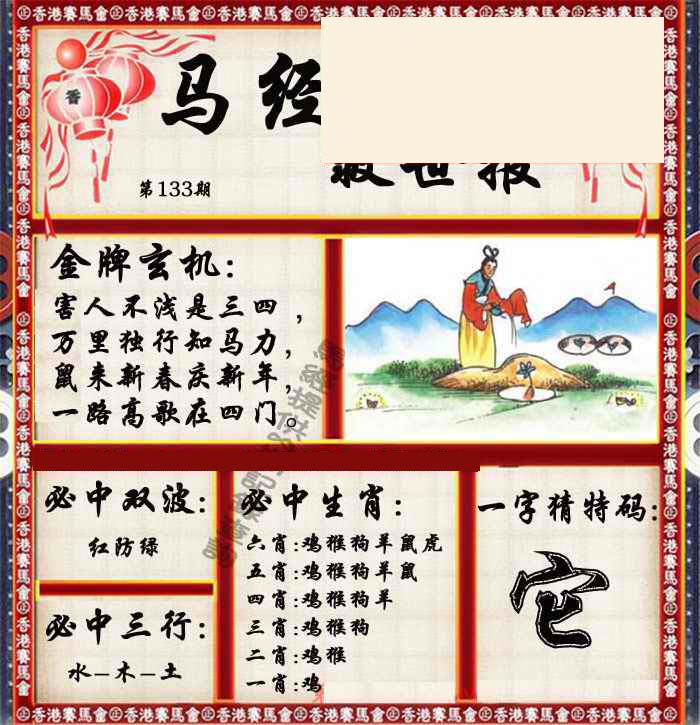 马经
救世报
第133期
金牌玄机:
害人不浅是三四，
万里独行知马力，
鼠来新春庆新年，
一路高歌在四门。
必中双波:
红防绿
必中三行:
水–木–土
必中生肖:
六肖:鸡猴狗羊鼠虎
五肖:鸡猴狗羊鼠
四肖:鸡猴狗羊
三肖:鸡猴狗
二肖:鸡猴
一肖:鸡
一字猜特码:
它
香
香港賽馬會